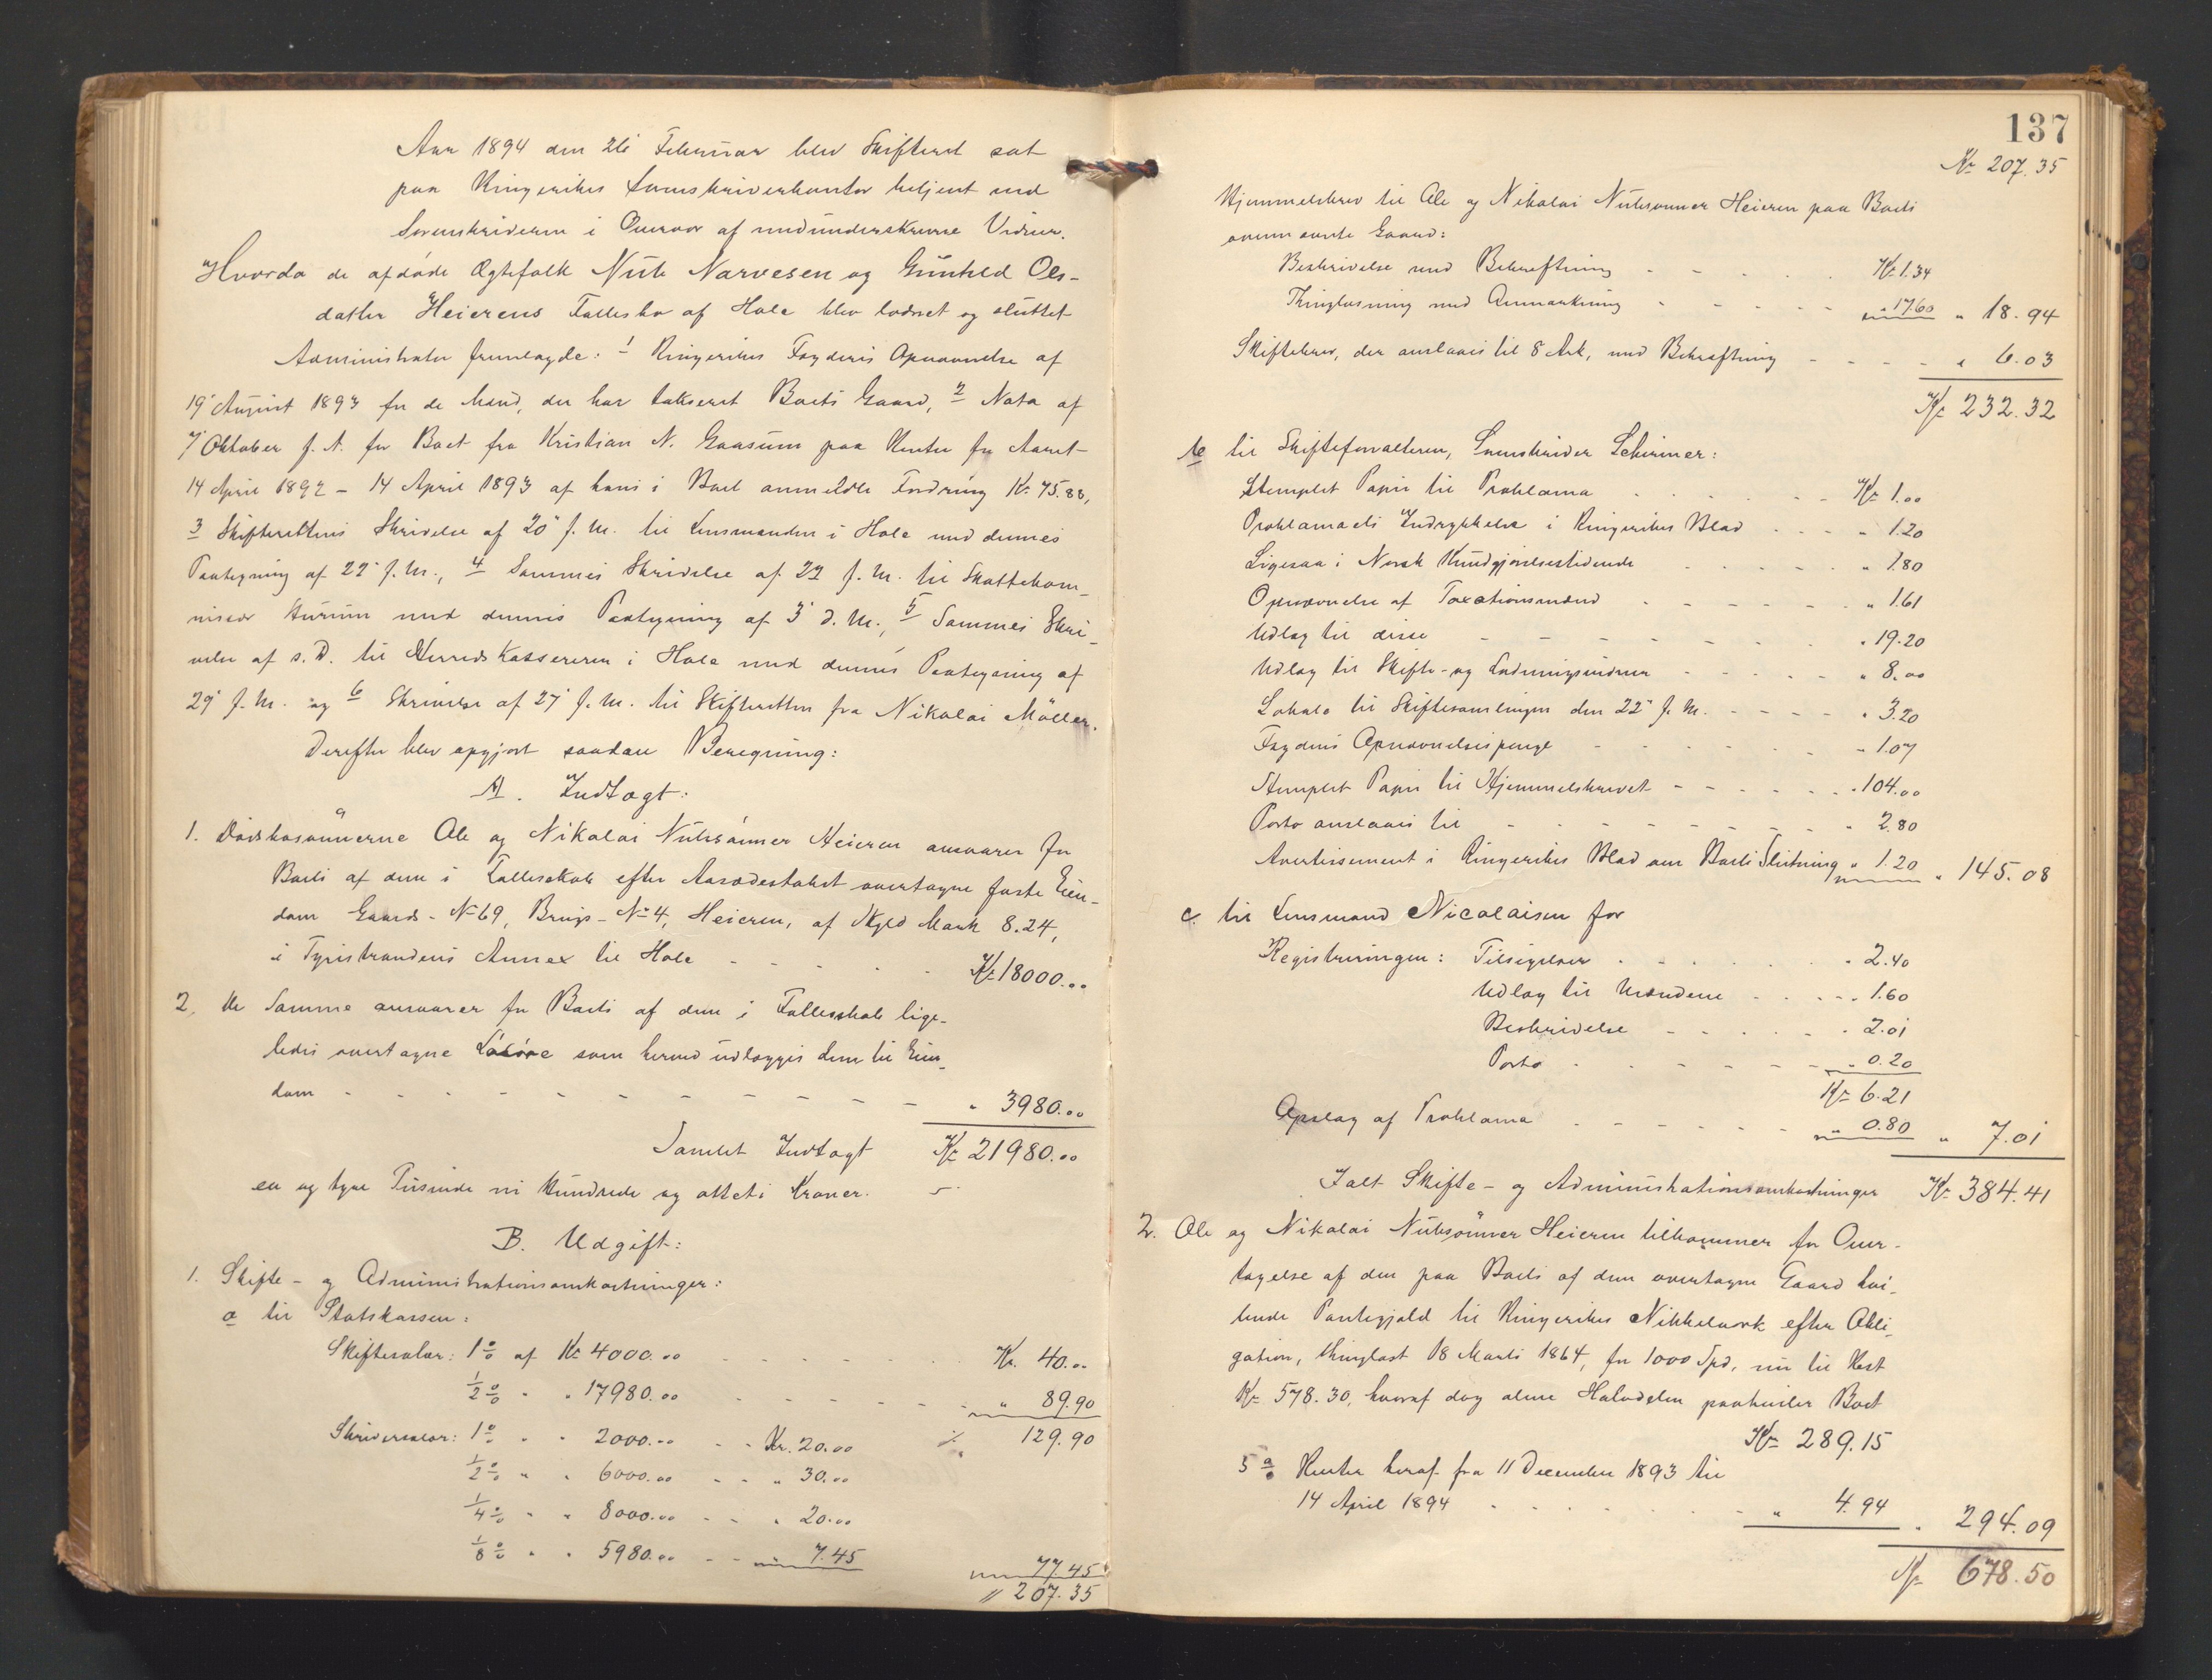 Aar 1894 den 26 Februar blev Skifteret sat
paa Ringerikes Sorenskriverkontor betjent med
Sorenskriveren i Overvær af medunderskrevne Vidner.
Hvorda de afdøde Ægtefolk Nub Narvesen og Gunhild Ols-
datter Heierens Fællesbo af Hole blev loddet og sluttet
Administrator fremlagde: 1 Ringerikes Fogderis Opnævnelse af
19 August 1893 for de Mænd, der har takseret Boets Gaard, 2 Nota af
7 Oktober f. A. for Boet fra Kristian N. Gaasum paa Renter for Aaret
14 April 1892 - 14 April 1893 af hans i Boet anmeldte Fordring Kr. 75.88,
3 Skifterettens Skrivelse af 20 f. M. til Lensmanden i Hole med dennes
Paategning af 22 f. M., 4 Sammes Skrivelse af 22 f. M. til Skattekom-
missær Hurum med dennes Paategning af 3 d. M., 5 Sammes Skri-
velse af s. D. til Herredskassereren i Hole med dennes Paategning af
29 f. M. og 6 Skrivelse af 27 f. M. til Skifteretten fra Nikolai Möller.
Derefter blev opgjort saadan Beregning:
A. Indtægt:
1. Dødsbosønnerne Ole og Nikolai Nubsønner Heieren ansvarer for
Boets af dem i Fællesskab efter Aasædestakst overtagne faste Eien-
dom Gaards-No 69, Brugs-No 4, Heieren, af Skyld Mark 8.24,
i Tyristrandens Annex til Hole - - - - - Kr. 18000.00
2. De Samme ansvarer for Boets af dem i Fællesskab lige-
ledes overtagne Løsøre som herved udlægges dem til Eien-
dom - - - - - - - - - - " 3980.00
Samlet Indtægt Kr. 21980.00
en og tyve Tusinde ni Hundrede og otteti Kroner.
B. Udgift:
1. Skifte- og Administrationsomkostninger:
a til Statskassen:
Skiftesalær: 1 % af Kr. 4000.00 - - - - - Kr. 40.00
1/2 % " " 17980.00 - - - - - " 89.90
129.90
Skriversalær: 1 % " " 2000.00 - - Kr. 20.00
1/2 % " " 6000.00 - - " 30.00
1/4 % " " 8000.00 - - " 20.00
1/8 % " " 5980.00 - - " 7.45
77.45
" 207.35
137
Kr. 207.35
Hjemmelsbrev til Ole og Nikolai Nubsønner Heieren paa Boets
ovennævnte Gaard:
Beskrivelse med Bekræftning - - - - Kr. 1.34
Thinglæsning med Anmærkning - - - - " 17.60 " 18.94
Skiftebrev, der anslaaes til 8 Ark, med Bekræftning - - - - " 6.03
Kr. 232.32
b til Skifteforvalteren, Sorenskriver Schirmer:
Stemplet Papir til Proklama - - - - - Kr. 1.00
Proklamaets Indrykkelse i Ringerikes Blad - - - - " 1.20
Ligesaa i Norsk Kundgjørelsestidende - - - - " 1.80
Opnævnelse af Taxationsmænd - - - - - " 1.61
Udlæg til disse - - - - - - " 19.20
Udlæg til Skifte- og Lodningsvidner - - - - " 8.00
Lokale til Skiftesamlingen den 22 f. M. - - - - " 3.20
Fogdens Opnævnelsespenge - - - - - " 1.07
Stemplet Papir til Hjemmelsbrevet - - - - - " 104.00
Porto anslaaes til - - - - - - - " 2.80
Avertissement i Ringerikes Blad om Boets Slutning " 1.20 " 145.08
c. til Lensmand Nicolaisen for
Registreringen: Tilsigelser - - - - " 2.40
Udlæg til Mændene - - - - " 1.60
Beskrivelse - - - - " 2.01
Porto - - - - - " 0.20
Kr. 6.21
Opslag af Proklama - - - - - " 0.80 " 7.01
Ialt Skifte- og Administrationsomkostninger Kr. 384.41
2. Ole og Nikolai Nubsønner Heieren tilkommer for Over-
tagelse af den paa Boets af dem overtagne Gaard hvi-
lende Pantegjæld til Ringerikes Nikkelværk efter Obli-
gation, thinglæst 18 Marts 1864, for 1000 Spd. nu til Rest
Kr. 578.30, hvoraf dog alene Halvdelen paahviler Boet
Kr. 289.15
5 % Renter heraf fra 11 December 1893 til
14 April 1894 - - - - - - " 4.94 " 294.09
Kr. 678.50